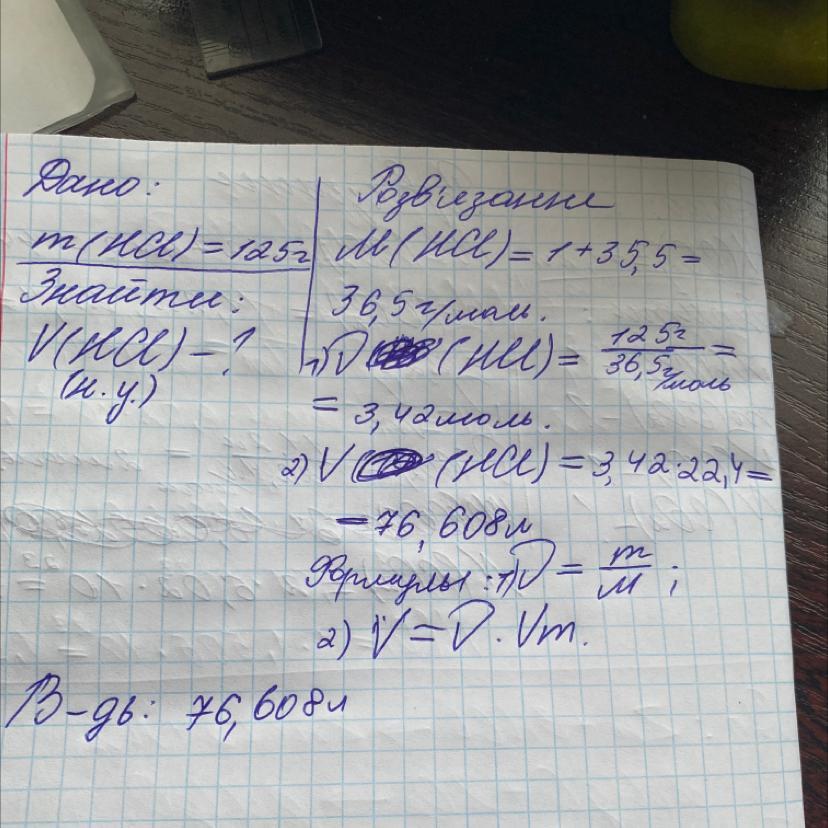 Дано:
m(HCl)=125г
Знайти:
V(HCl)-?
(н.у.)
Розв'язання
M(HCl)=1+35,5=
36,5г/моль.
1)ν (HCl) = 125г/36,5г/моль =
= 3,42моль.
2) V (HCl) = 3,42·22,4=
=76,608л
Формулы: 1)ν = m/M ;
2) V=ν·Vm.
В-дь: 76,608л